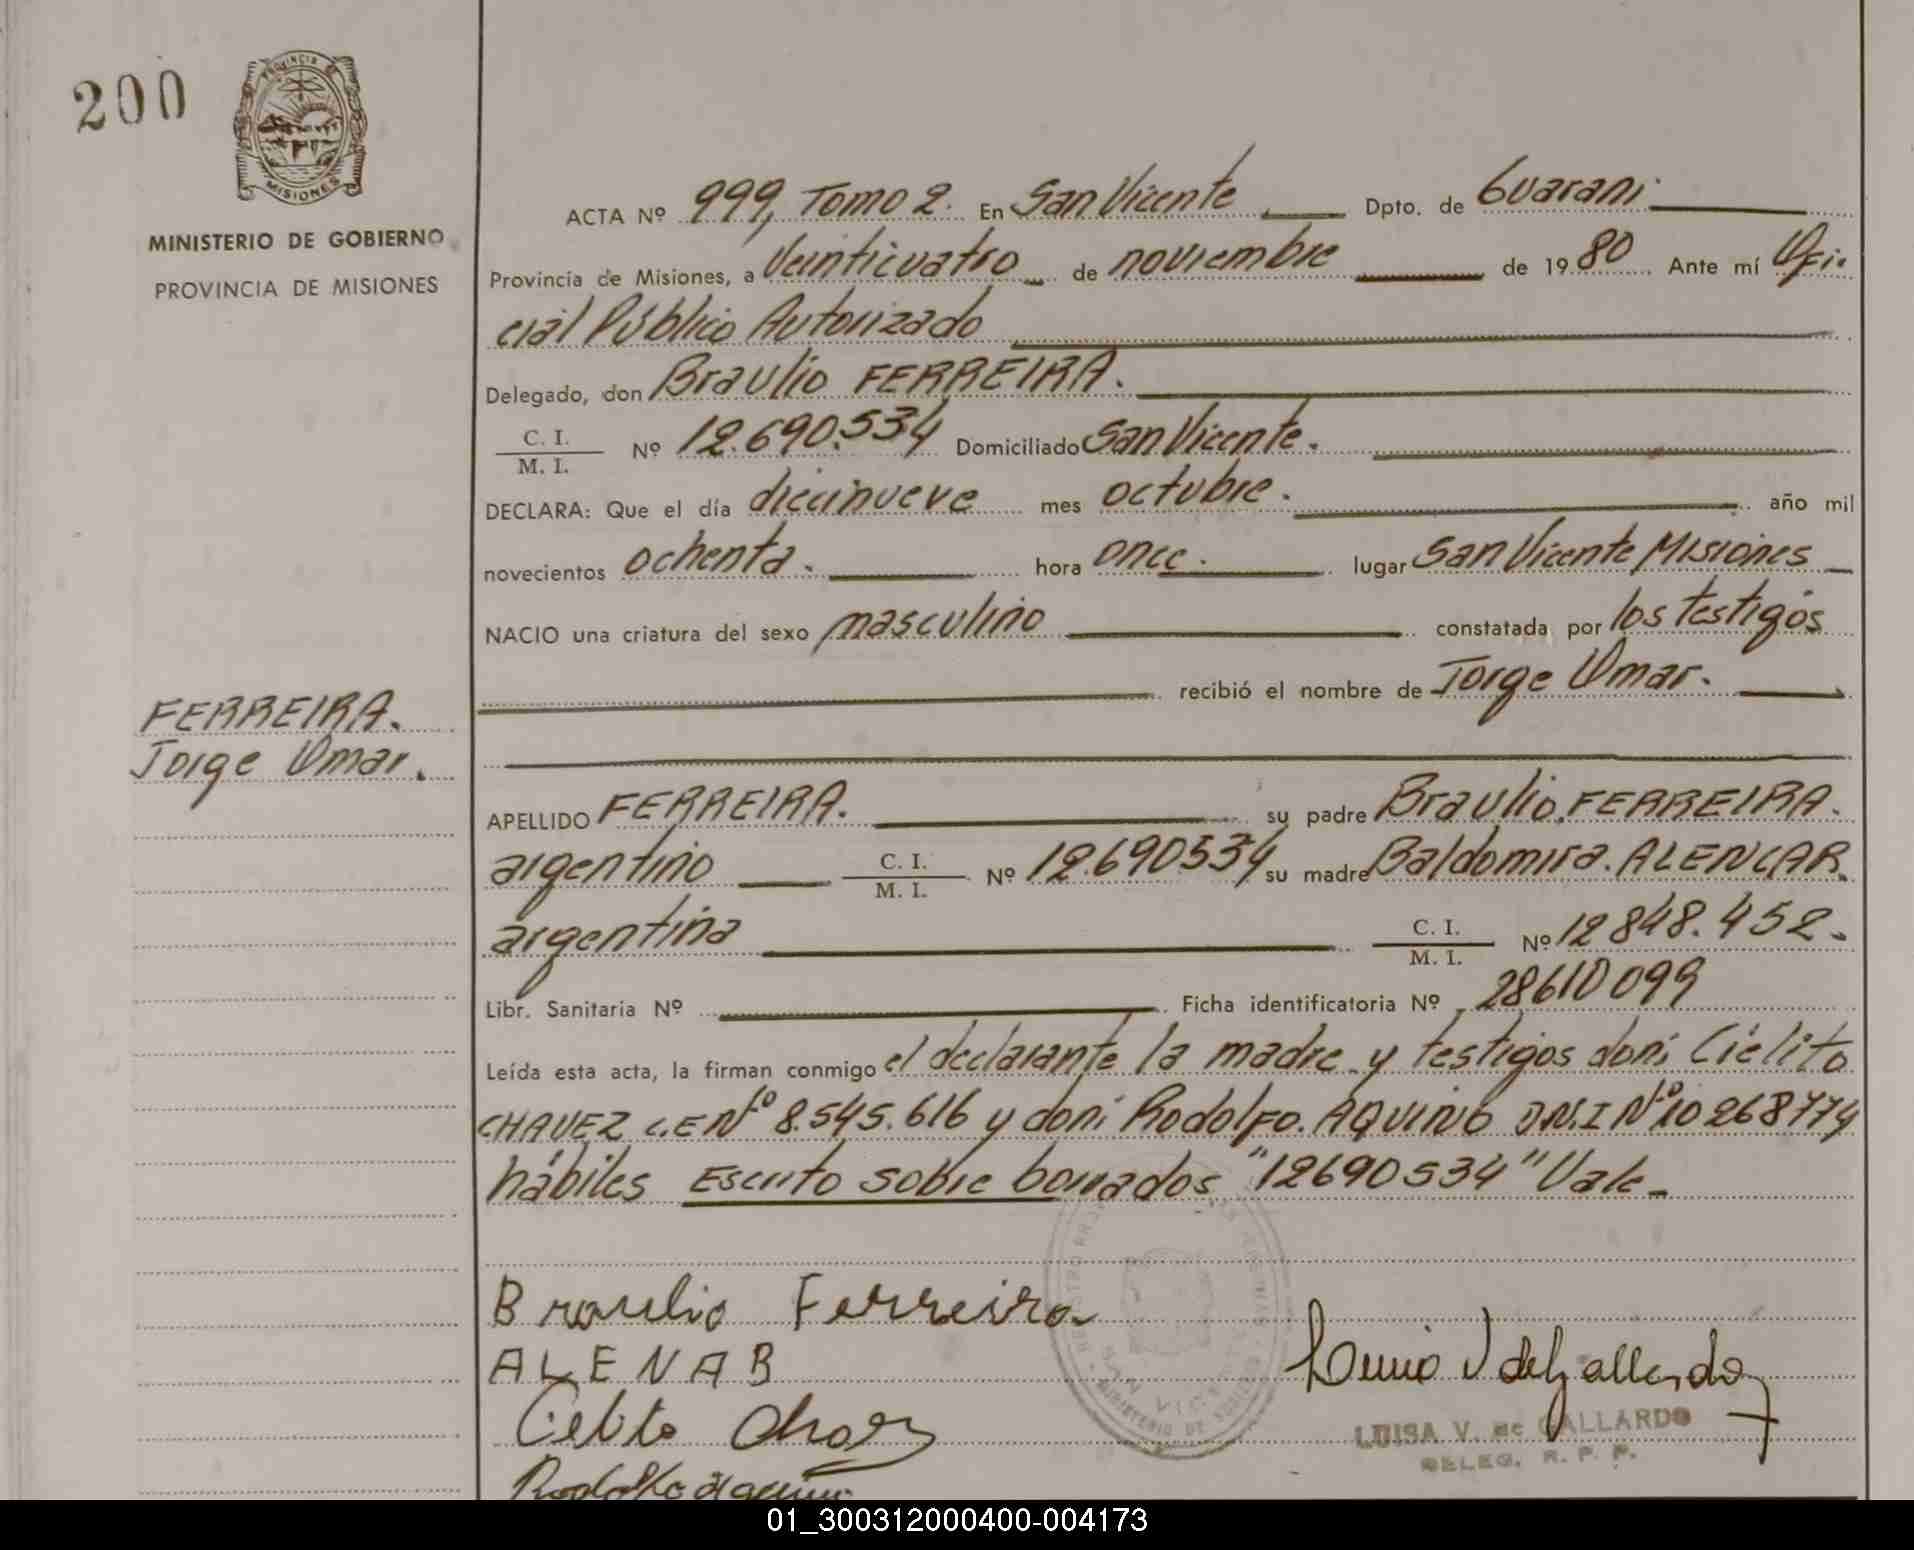 200
PROVINCIA DE
MISIONES
MINISTERIO DE GOBIERNO
PROVINCIA DE MISIONES
ACTA Nº 999, Tomo 2. En San Vicente Dpto. de Guarani
Provincia de Misiones, a Veinticuatro de noviembre de 1980 Ante mí Ofi-
cial Público Autorizado
Delegado, don Braulio FERREIRA.
C. I.
M. I. Nº 12.690.534 Domiciliado San Vicente.
DECLARA: Que el día diecinueve mes octubre. año mil
novecientos ochenta. hora once. lugar San Vicente Misiones
NACIO una criatura del sexo masculino constatada por los testigos
recibió el nombre de Jorge Omar.
FERREIRA.
Jorge Omar.
APELLIDO FERREIRA. su padre Braulio. FERREIRA.
argentino C. I. M. I. Nº 12.690534 su madre Baldomira. ALENCAR.
argentina C. I. M. I. Nº 12 848.452.
Libr. Sanitaria Nº Ficha identificatoria Nº 28610099
Leída esta acta, la firman conmigo el declarante la madre y testigos doni Cielito
CHAVEZ C.E Nº 8.545.616 y doni Rodolfo. AQUINO D.N.I Nº 10 268774
hábiles Escrito sobre borrados "12690534" Vale
Braulio Ferreira
ALENAB
Celito
LUISA V. de GALLARDO
DELEG. R. P. P.
01_300312000400-004173